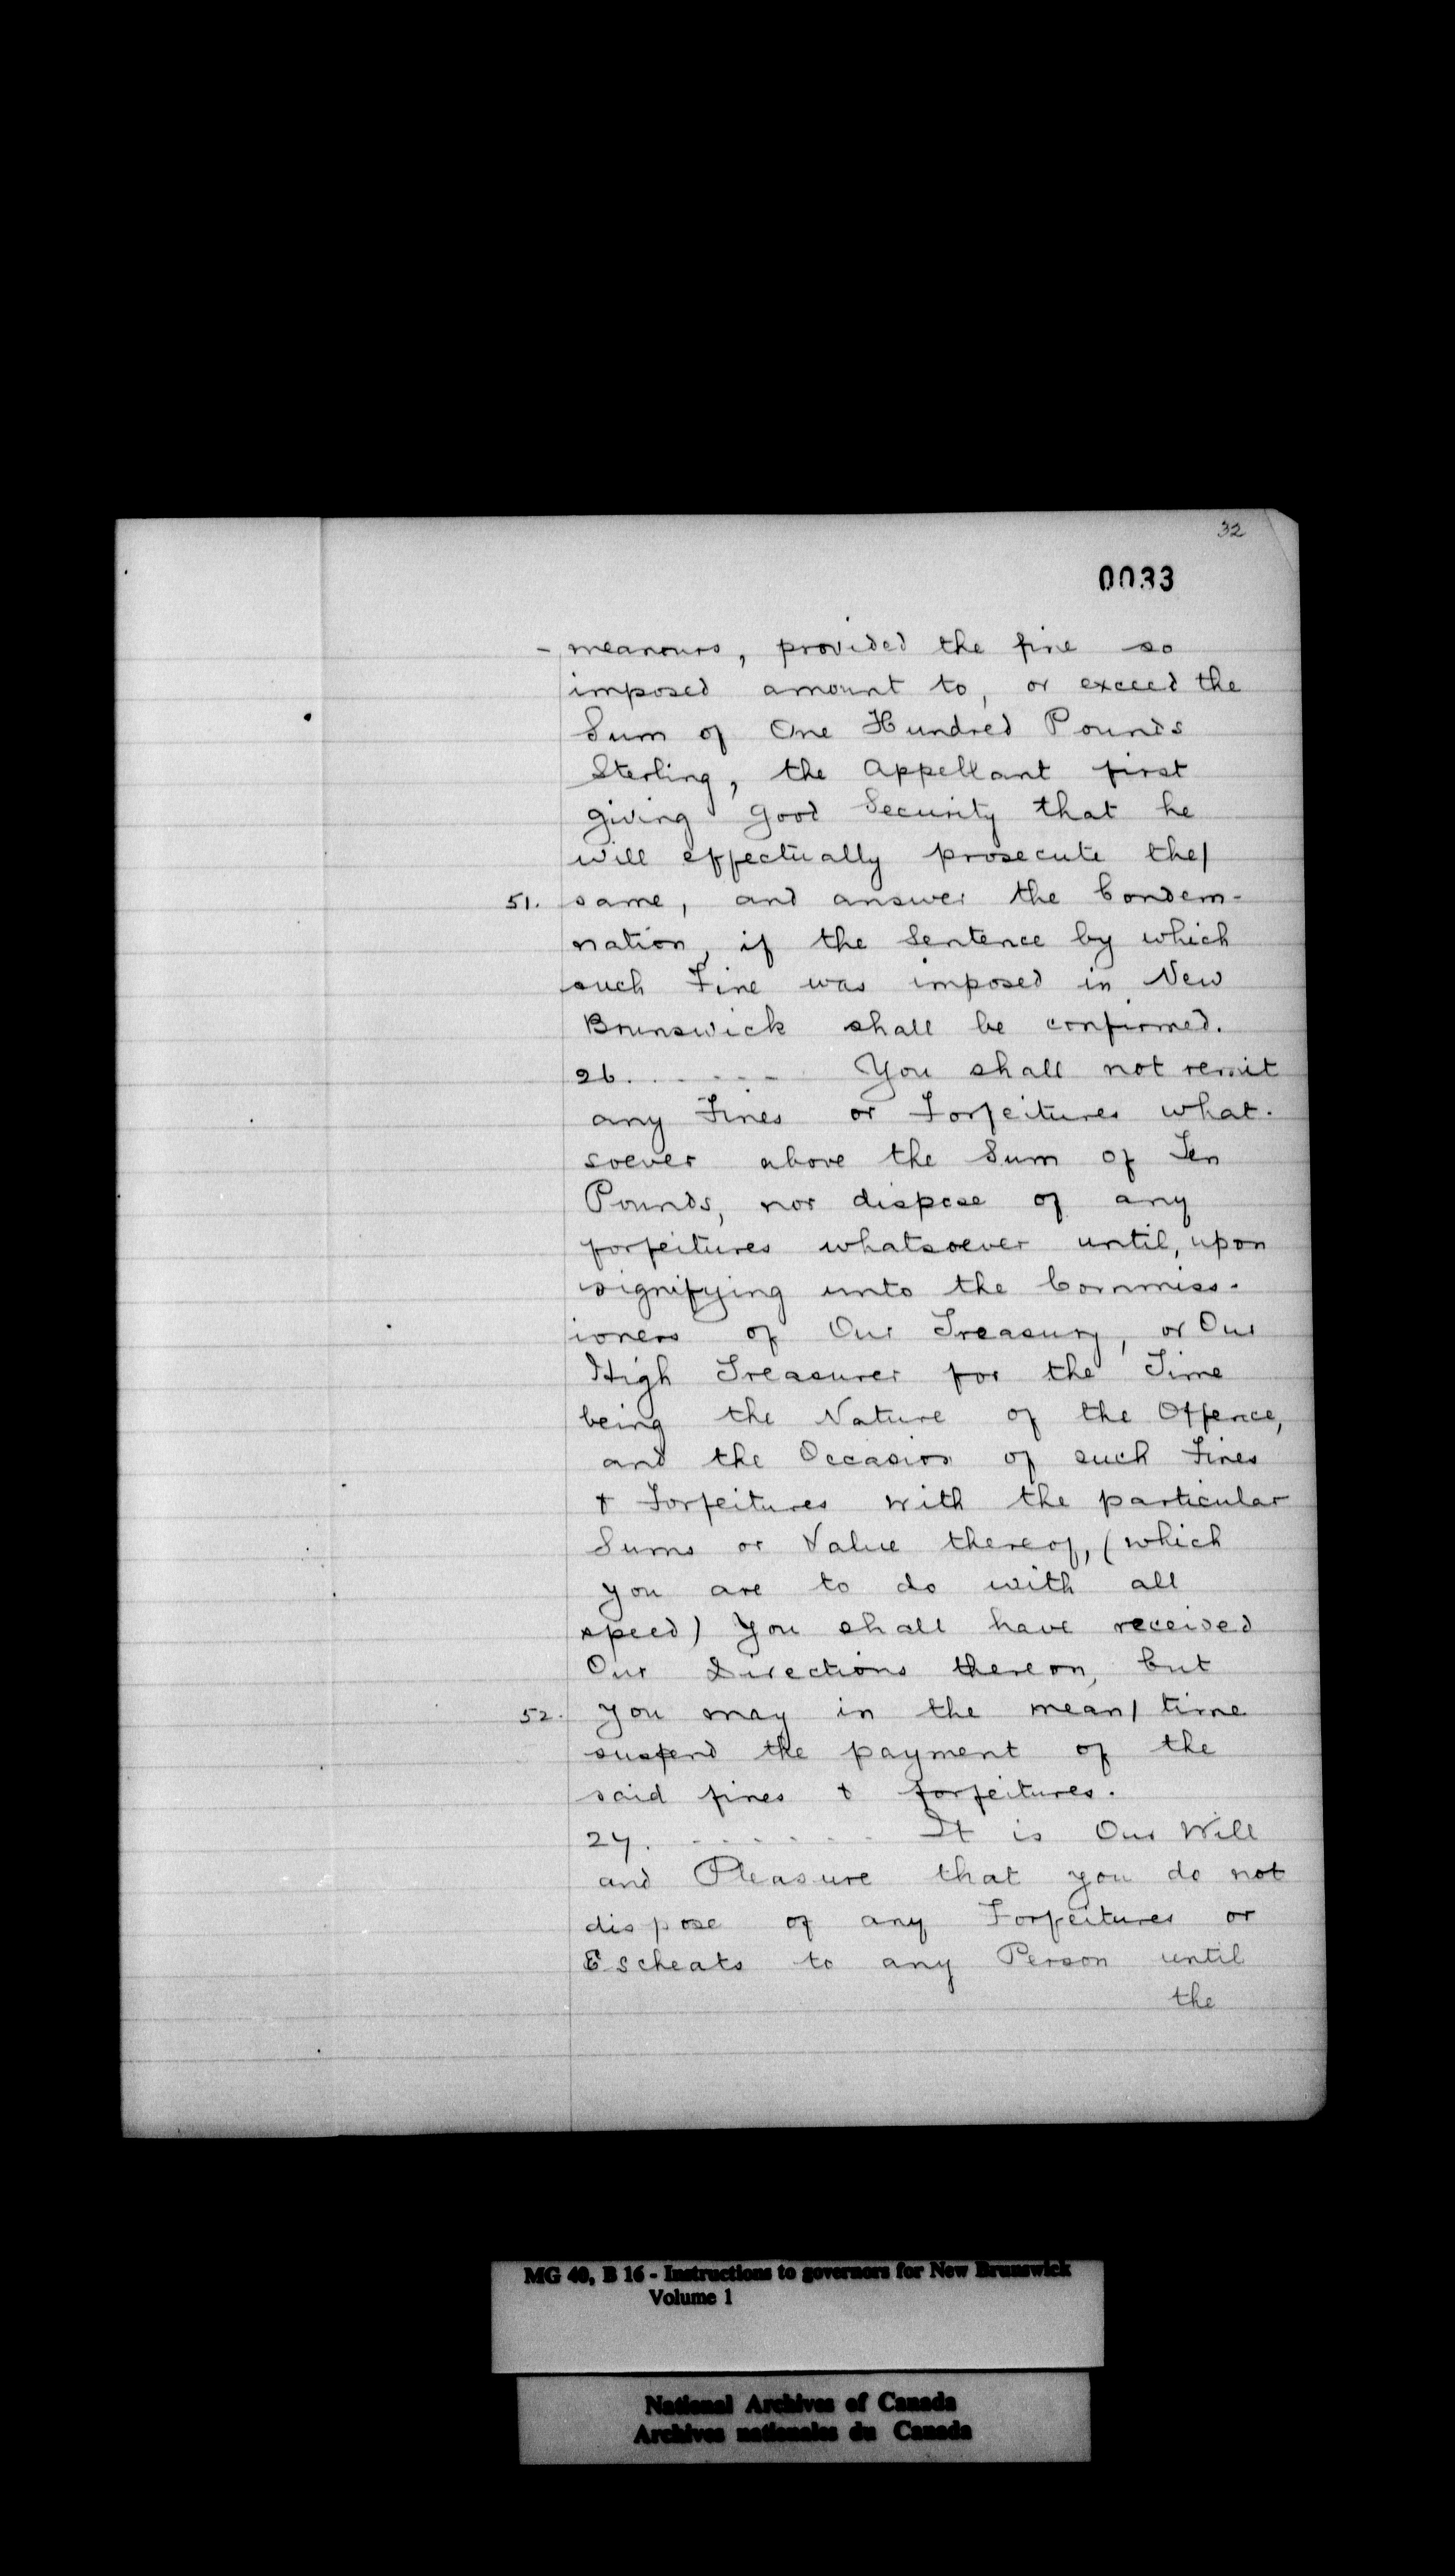 32
0033
- meanours, provided the fine so
imposed amount to, or exceed the
Sum of One Hundred Pounds
Sterling, the Appellant first
giving good Security that he
will effectually prosecute the/
51. same, and answer the Condem-
nation, if the Sentence by which
such Fine was imposed in New
Brunswick shall be confirmed.
26. - - - - You shall not remit
any Fines or Forfeitures what-
soever above the Sum of Ten
Pounds, nor dispose of any
forfeitures whatsoever until, upon
signifying unto the Commiss-
ioners of Our Treasury, or Our
High Treasurer for the Time
being the Nature of the Offence,
and the Occasion of such Fines
& Forfeitures with the particular
Sums or Value thereof, (which
you are to do with all
speed) You shall have received
Our Directions thereon, but
52. you may in the mean/ time
suspend the payment of the
said fines & forfeitures.
27. - - - - - - - It is Our Will
and Pleasure that you do not
dispose of any Forfeitures or
Escheats to any Person until
the
MG 40, B 16 - Instructions to governors for New Brunswick
Volume 1
National Archives of Canada
Archives nationales du Canada